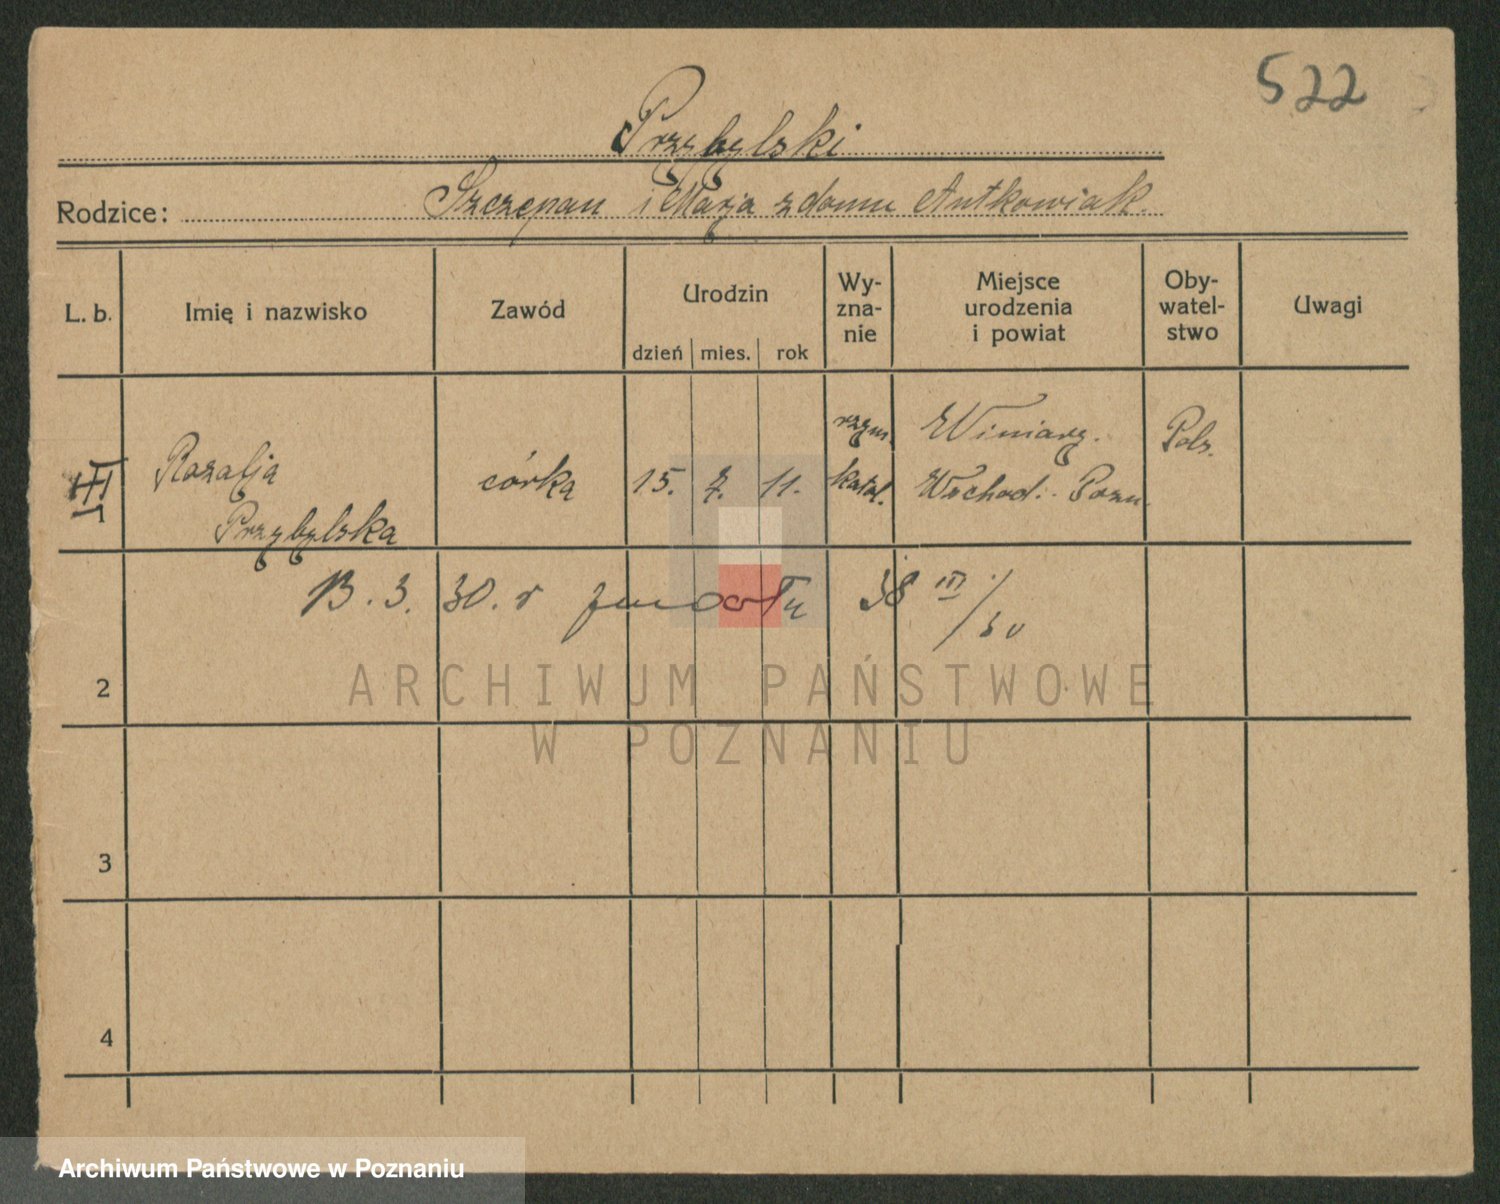 522
Przybylski
Rodzice: Szczepan i Marja z domu Antkowiak.
L. b. Imię i nazwisko Zawód Urodzin dzień mies. rok Wy-zna-nie Miejsce urodzenia i powiat Oby-watel-stwo Uwagi
rzym. Winiary. Pols.
III Rozalja córka 15. 7. 11. katol. Wschod. Pozn.
1 Przybylska
13. 3. 30. r zmarła 38 III / 30
2
3
4
ARCHIWUM PAŃSTWOWE
W POZNANIU
Archiwum Państwowe w Poznaniu